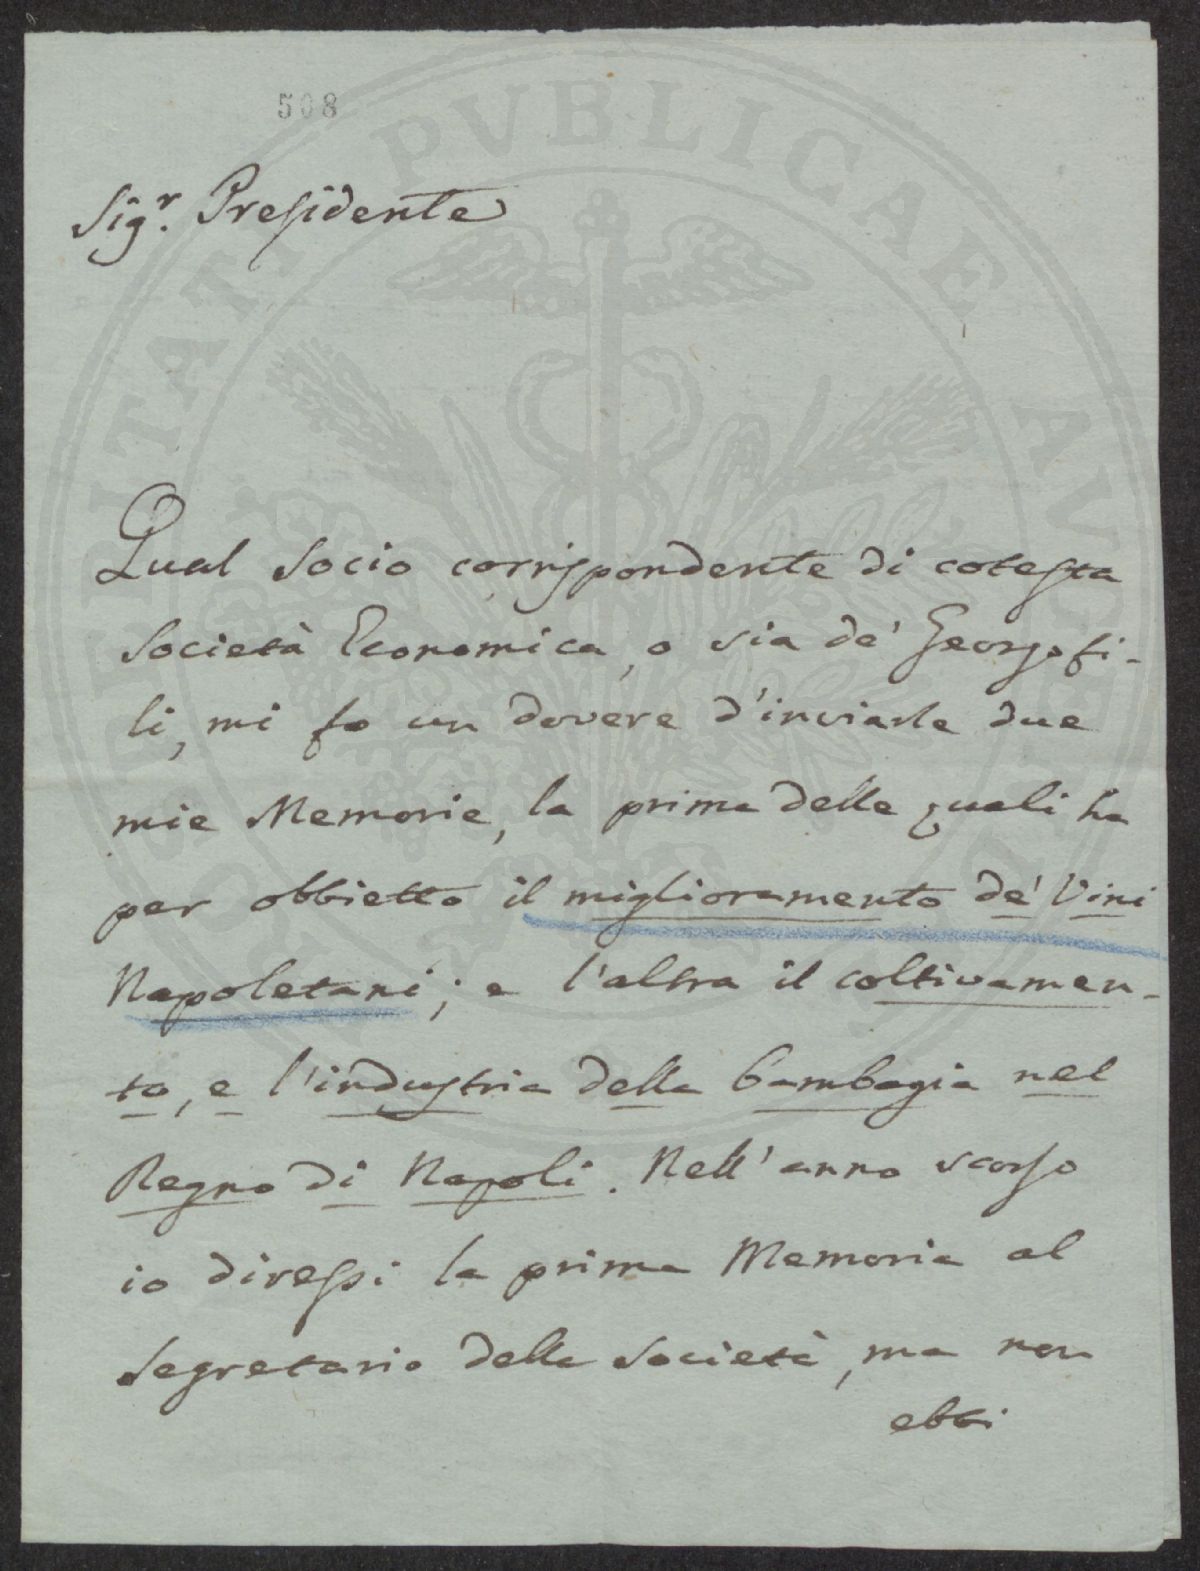 508
Sig.r Presidente
Qual Socio corrispondente di cotesta
Società Economica, o sia de' Georgofi-
li, mi fo un dovere d'inviarle due
mie Memorie, la prima delle quali ha
per obbietto il miglioramento de' Vini
Napoletani; e l'altra il coltivamen-
to, e l'industria della bambagia nel
Regno di Napoli. Nell'anno scorso
io diressi la prima Memoria al
Segretario della Società, ma non
ebbi
PROSPERITATI PVBLICAE AVGENDAE